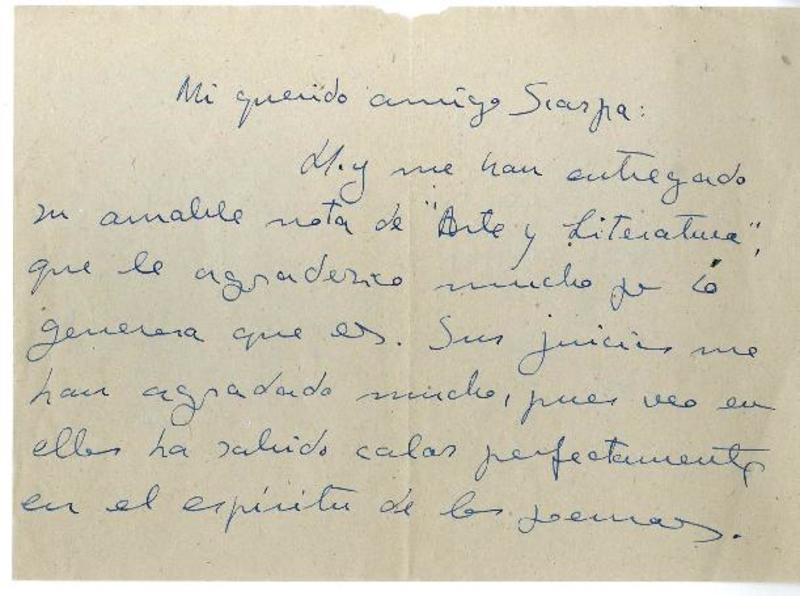 Mi querido amigo Scarpa:
Hoy me han entregado
su amable nota de "Arte y Literatura",
que le agradezco mucho por lo
generosa que es. Sus juicios me
han agradado mucho, pues veo en
ellos ha sabido calar perfectamente
en el espíritu de los poemas.